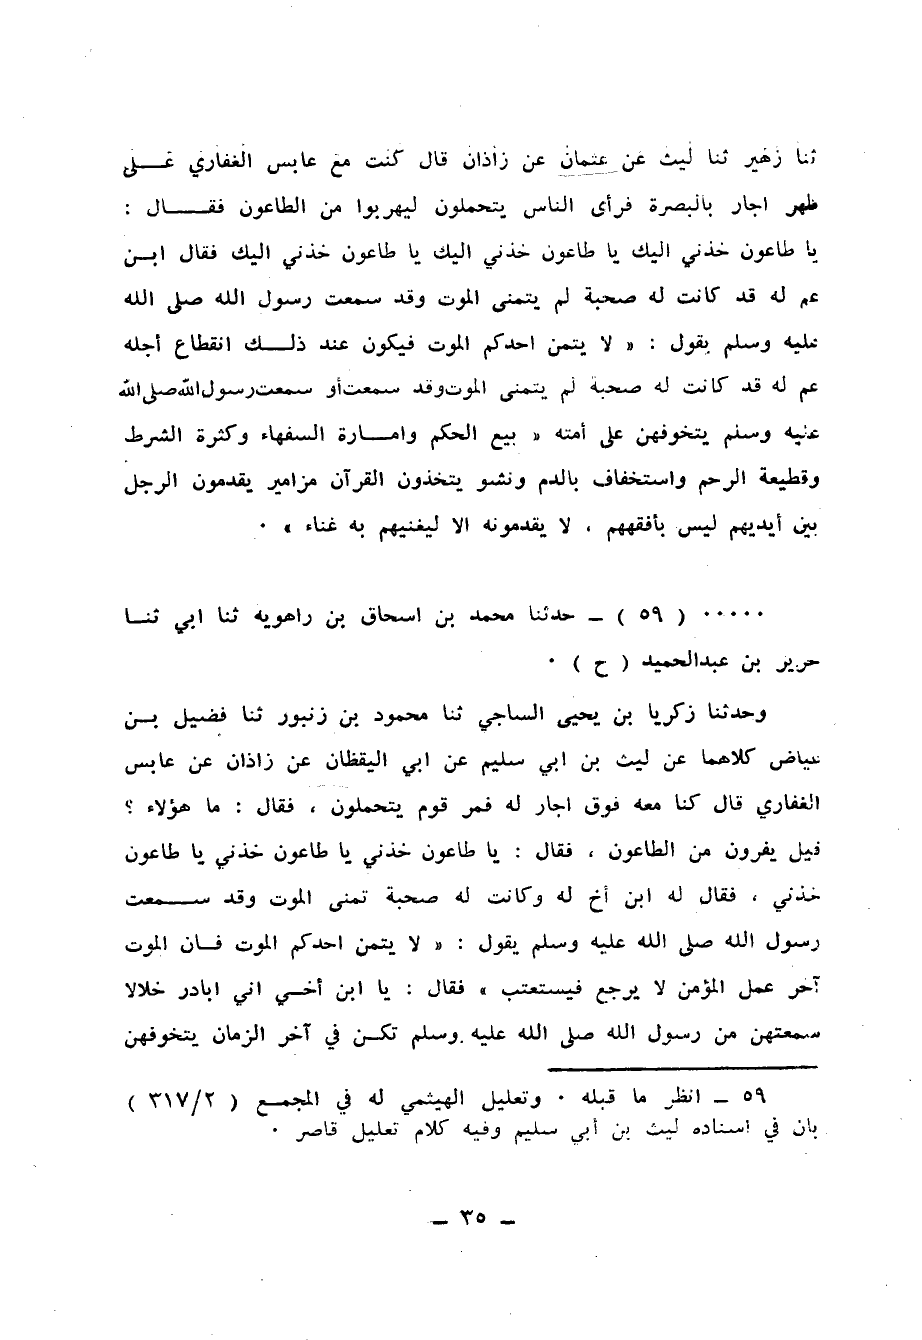 ثنا زهير ثنا ليث عن عثمان عن زاذان قال كنت مع عابس الغفاري على
ظهر اجار بالبصرة فرأى الناس يتحملون ليهربوا من الطاعون فقال :
يا طاعون خذني اليك يا طاعون خذني اليك يا طاعون خذني اليك فقال ابن
عم له قد كانت له صحبة لم يتمنى الموت وقد سمعت رسول الله صلى الله
عليه وسلم يقول : « لا يتمن احدكم الموت فيكون عند ذلك انقطاع أجله
عم له قد كانت له صحبة لم يتمنى الموت وقد سمعت أو سمعت رسول الله صلى الله
عليه وسلم يتخوفهن على أمته « بيع الحكم وامارة السفهاء وكثرة الشرط
وقطيعة الرحم واستخفاف بالدم ونشو يتخذون القرآن مزامير يقدمون الرجل
بين أيديهم ليس بأفقههم ، لا يقدمونه الا ليغنيهم به غناء » ·
····· ( ٥٩ ) ــ حدثنا محمد بن اسحاق بن راهويه ثنا ابي ثنا
حرير بن عبدالحميد ( ح ) ·
وحدثنا زكريا بن يحيى الساجي ثنا محمود بن زنبور ثنا فضيل بن
عياض كلاهما عن ليث بن ابي سليم عن ابي اليقظان عن زاذان عن عابس
الغفاري قال كنا معه فوق اجار له فمر قوم يتحملون ، فقال : ما هؤلاء ؟
قيل يفرون من الطاعون ، فقال : يا طاعون خذني يا طاعون خذني يا طاعون
خذني ، فقال له ابن أخ له وكانت له صحبة تمنى الموت وقد سمعت
رسول الله صلى الله عليه وسلم يقول : « لا يتمن احدكم الموت فان الموت
آخر عمل المؤمن لا يرجع فيستعتب » فقال : يا ابن أخي اني ابادر خلالا
سمعتهن من رسول الله صلى الله عليه وسلم تكن في آخر الزمان يتخوفهن
٥٩ ــ انظر ما قبله · وتعليل الهيثمي له في المجمع ( ٣١٧/٢ )
بان في اسناده ليث بن أبي سليم وفيه كلام تعليل قاصر ·
ــ ٣٥ ــ